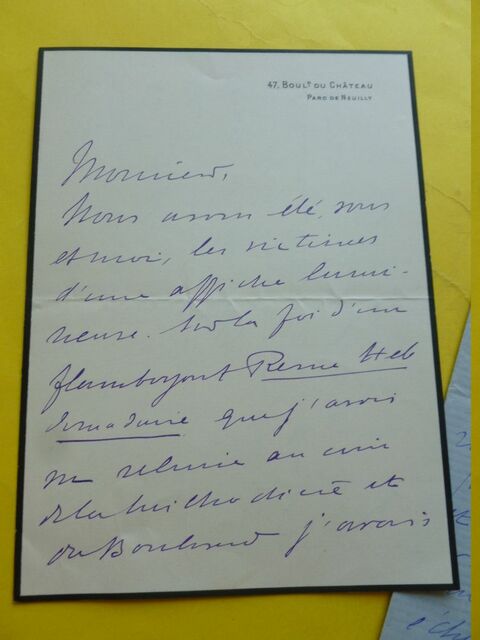 47, BOULT DU CHÂTEAU
PARC DE NEUILLY
Monsieur,
Nous avons été, vous
et moi, les victimes
d'une affiche lumi-
neuse. Sur la foi d'un
flamboyant Revue Heb
domadaire que j'avais
vu reluire au coin
de la Michodière et
du Boulevard j'avais